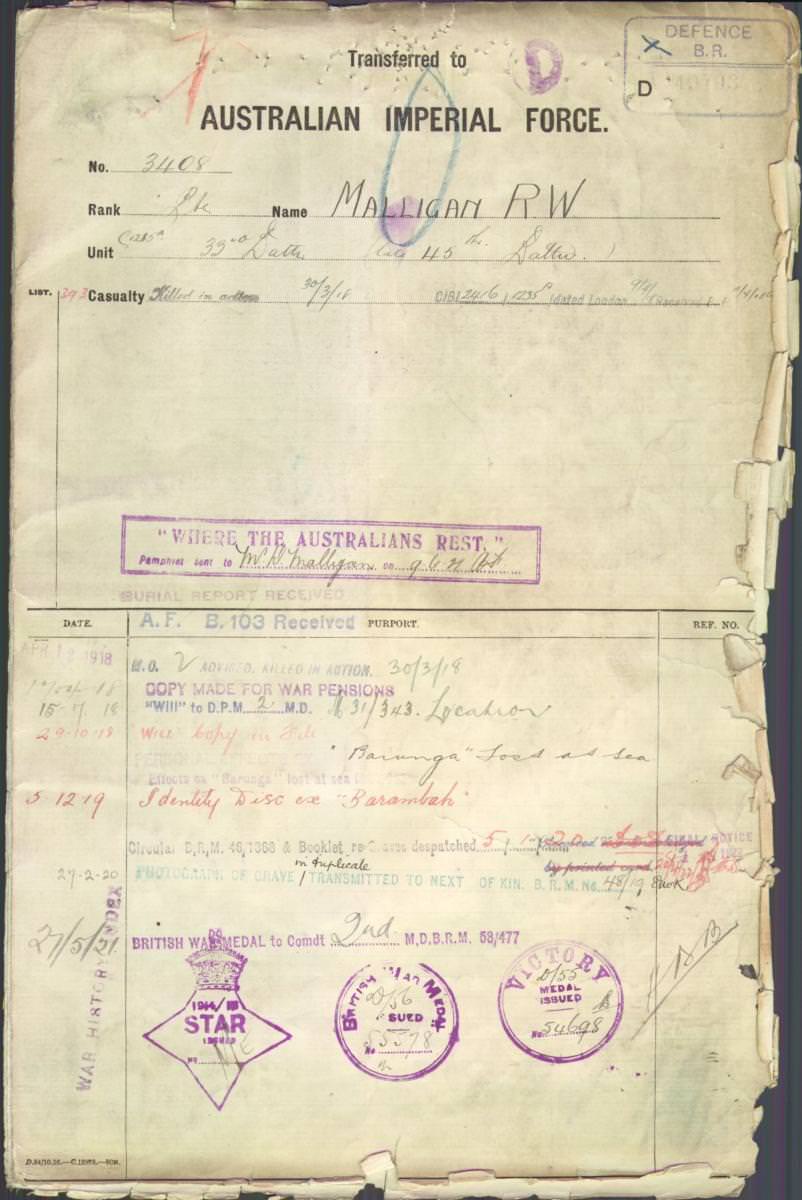 Transferred to
D
DEFENCE
B.R.
D
AUSTRALIAN IMPERIAL FORCE.
No. 3408
Rank Name MALLIGAN R.W
Unit 33rd Battn. late 45th Battn.)
LIST. 393 Casualty Killed in action 30/3/18 C/B/ 2416 1235 dated London 9/4/ Received
"WHERE THE AUSTRALIANS REST."
Pamphlet sent to Mr D. Malligan on
BURIAL REPORT RECEIVED
DATE. A.F. B.103 Received PURPORT. REF. NO.
APR 12 1918 M.O. V ADVISED, KILLED IN ACTION. 30/3/18
COPY MADE FOR WAR PENSIONS
15-7 18 "Will" to D.P.M. 2 M.D. 31/343. Location
29-10-18 Will Copy in File
"Barunga" Lost at sea
Effects ex "Barunga" lost at sea
5 12 19 Identity Disc ex "Barambah"
Circular B.R.M. 46/1368 & Booklet re Graves despatched 5/1/20
by printed card
in duplicate
27-2-20 PHOTOGRAPH OF GRAVE / TRANSMITTED TO NEXT OF KIN. B.R.M. No. 48/19
27/5/21 BRITISH WAR MEDAL to Comdt 2nd M.D.B.R.M. 53/477
WAR HISTORY INDEX
1914/15
STAR
ISSUED
No.
BRITISH WAR MEDAL
D/56
ISSUED
No 55578
VICTORY
D/55
MEDAL
ISSUED
No. 54698